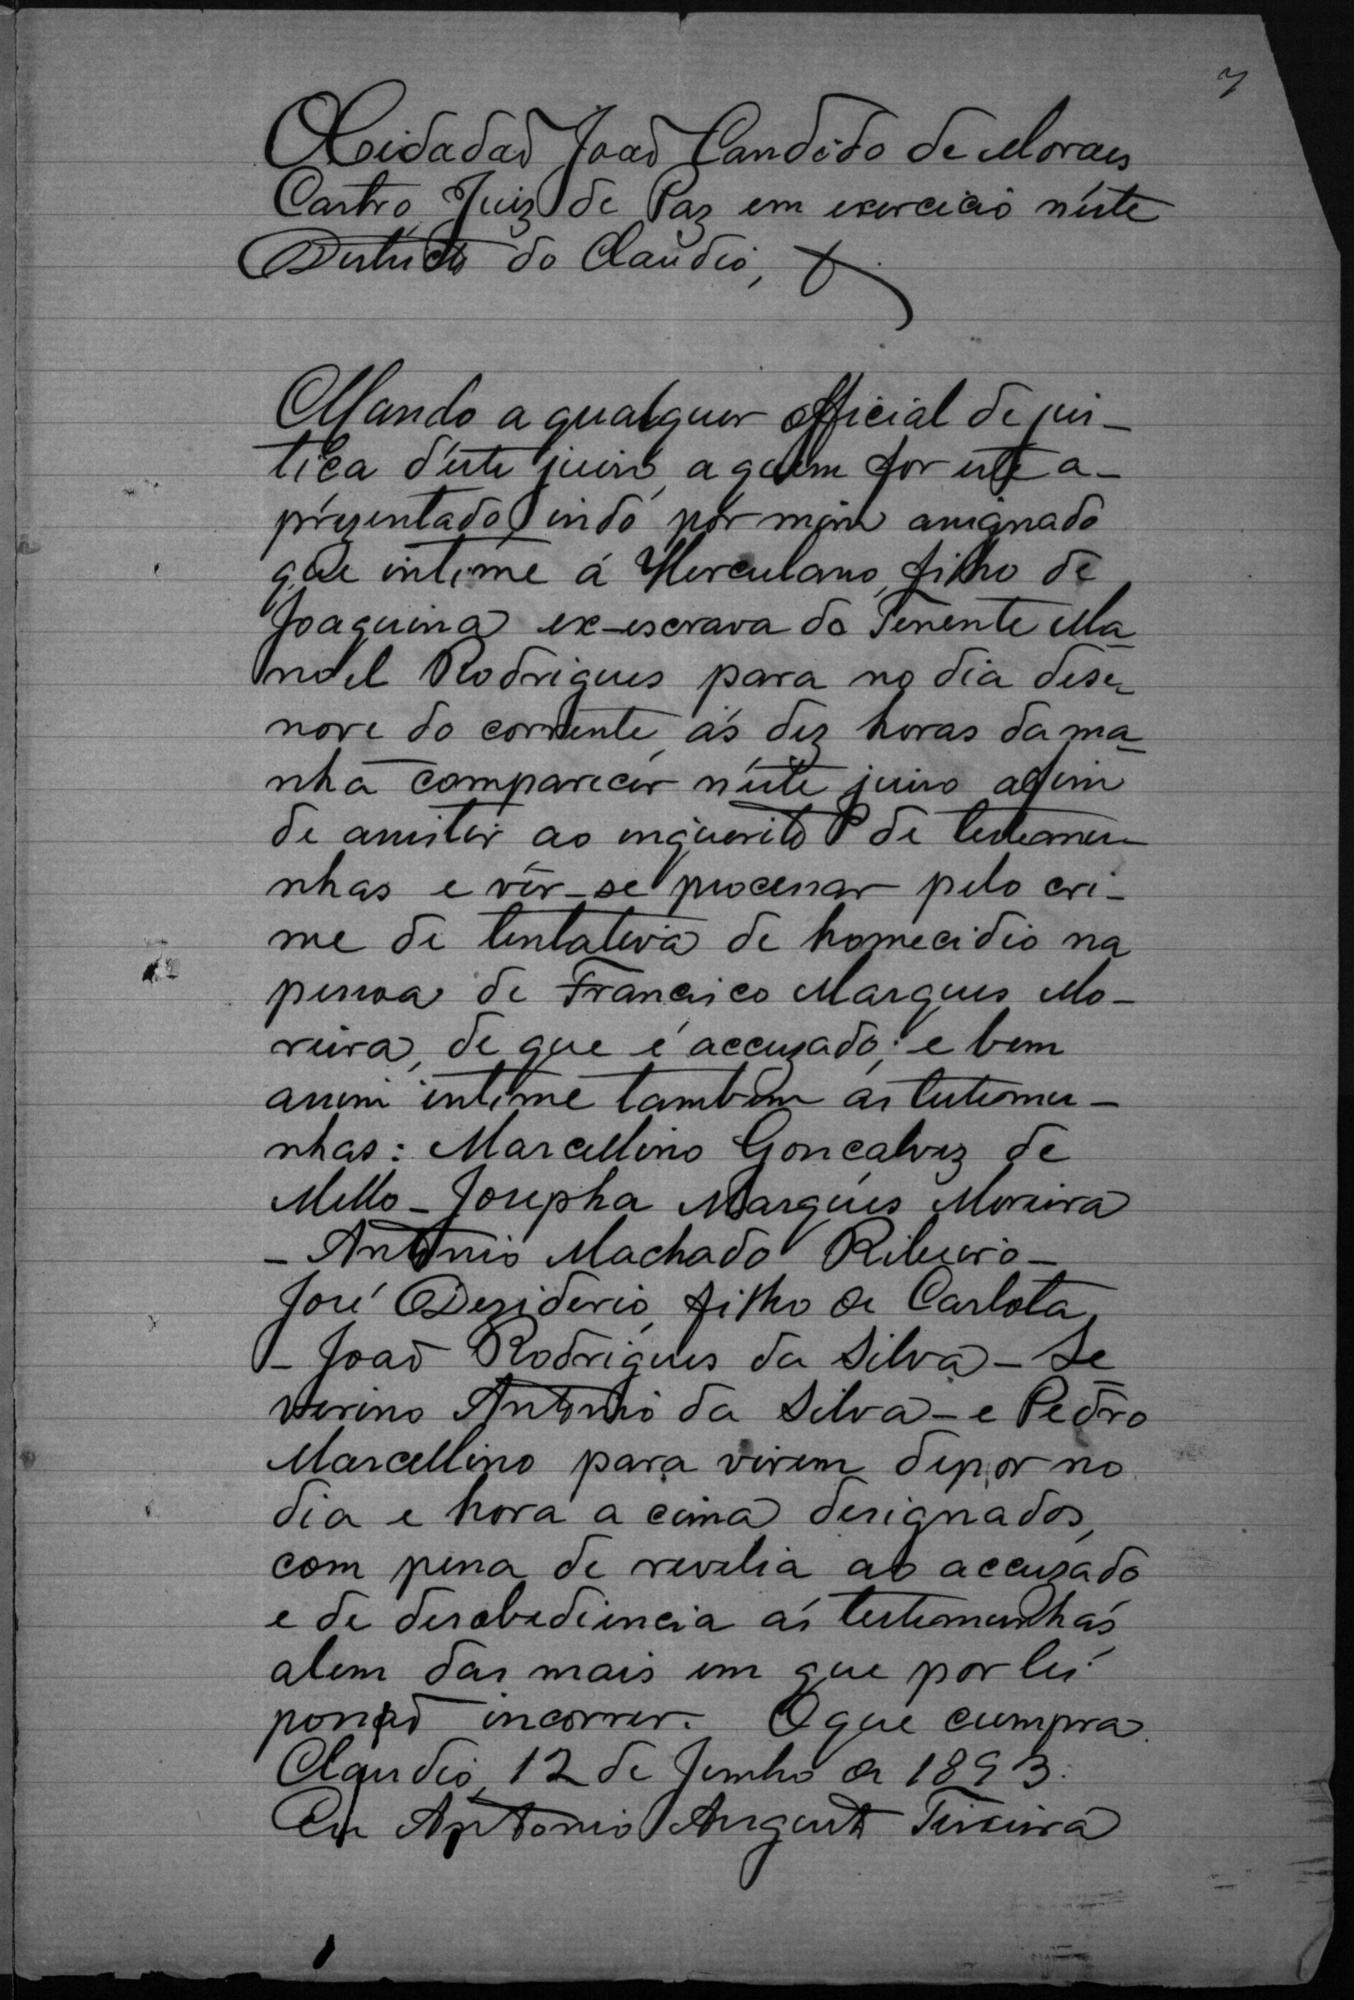 7
O Cidadaõ Joaõ Candido de Moraes
Castro, Juiz de Paz em exercicio n'este
Districto do Claudio,
Mando a qualquer official de jus-
tiça d'este juizo, a quem for este a-
prezentado, indo por mim assignado
que intime á Herculano, filho de
Joaquina ex-escrava do Tenente Ma
noel Rodrigues para no dia dese-
nove do corrente, ás dez horas da ma-
nhã comparecer n'este juizo afim
de assistir ao inquerito de testemu-
nhas e vêr-se processar pelo cri-
me de tentativa de homecidio na
pessoa de Francisco Marques Mo-
reira, de que é accuzado; e bem
assim intime tambem as testemu-
nhas: Marcellino Goncalvez de
Mello - Josepha Marques Moreira
- Antonio Machado Ribeiro -
José Deziderio, filho de Carlota,
- Joaõ Rodrigues da Silva - Se
verino Antonio da Silva - e Pedro
Marcellino para virem depor no
dia e hora a cima designados,
com pena de revelia ao accuzado
e de desobediencia ás testemunhas,
alem das mais em que por lei
possaõ incorrer. O que cumpra.
Claudio, 12 de Junho de 1893.
Eu Antonio Augusto Teixeira